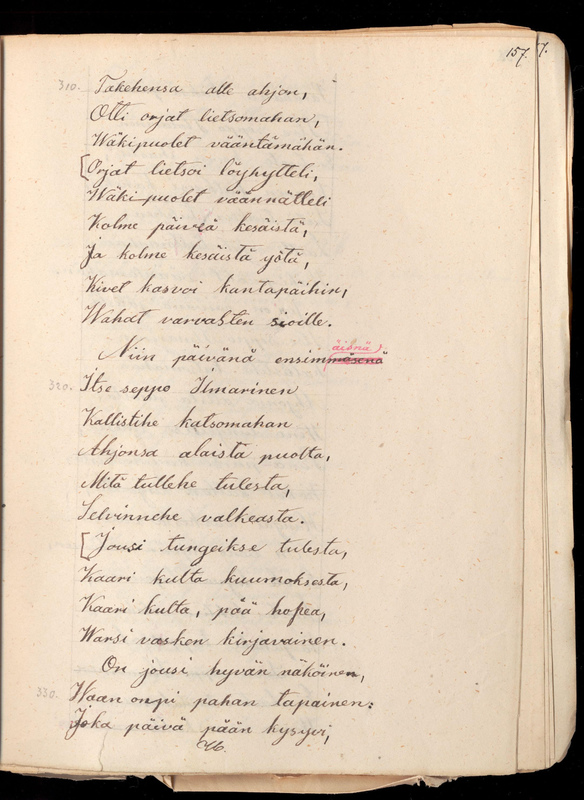 157. 7.
310. Takehensa alle ahjon,
Otti orjat lietsomahan,
Wäkipuolet vääntämähän.
[Orjat lietsoi löyhytteli,
Wäki-puolet väännätteli
Kolme päiveä kesäistä,
Ja kolme kesäistä yötä,
Kivet kasvoi kantapäihin,
Wahat varvasten sioille.
äisnä)
Niin päivänä ensimmäsenä
320. Itse seppo Ilmarinen
Kallistihe katsomahan
Ahjonsa alaista puolta,
Mitä tullehe tulesta,
Selvinnehe valkeasta.
[Jousi tungeikse tulesta,
Kaari kulta kuumoksesta,
Kaari kulta, pää hopea,
Warsi vasken kirjavainen.
On jousi hyvän näköinen,
330. Waan onpi pahan tapainen:
Joka päivä pään kysyvi,